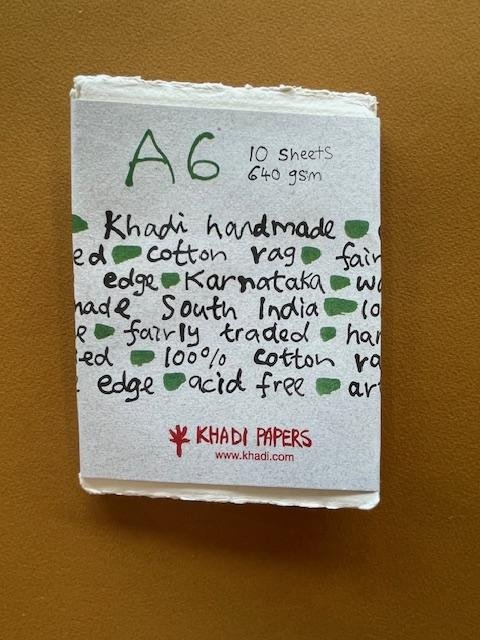 A6
10 sheets
640 gsm
Khadi handmade
ed cotton rag fair
edge Karnataka wa
made South India 10
e fairly traded han
ed 100% cotton ra
edge acid free ar
KHADI PAPERS
www.khadi.com